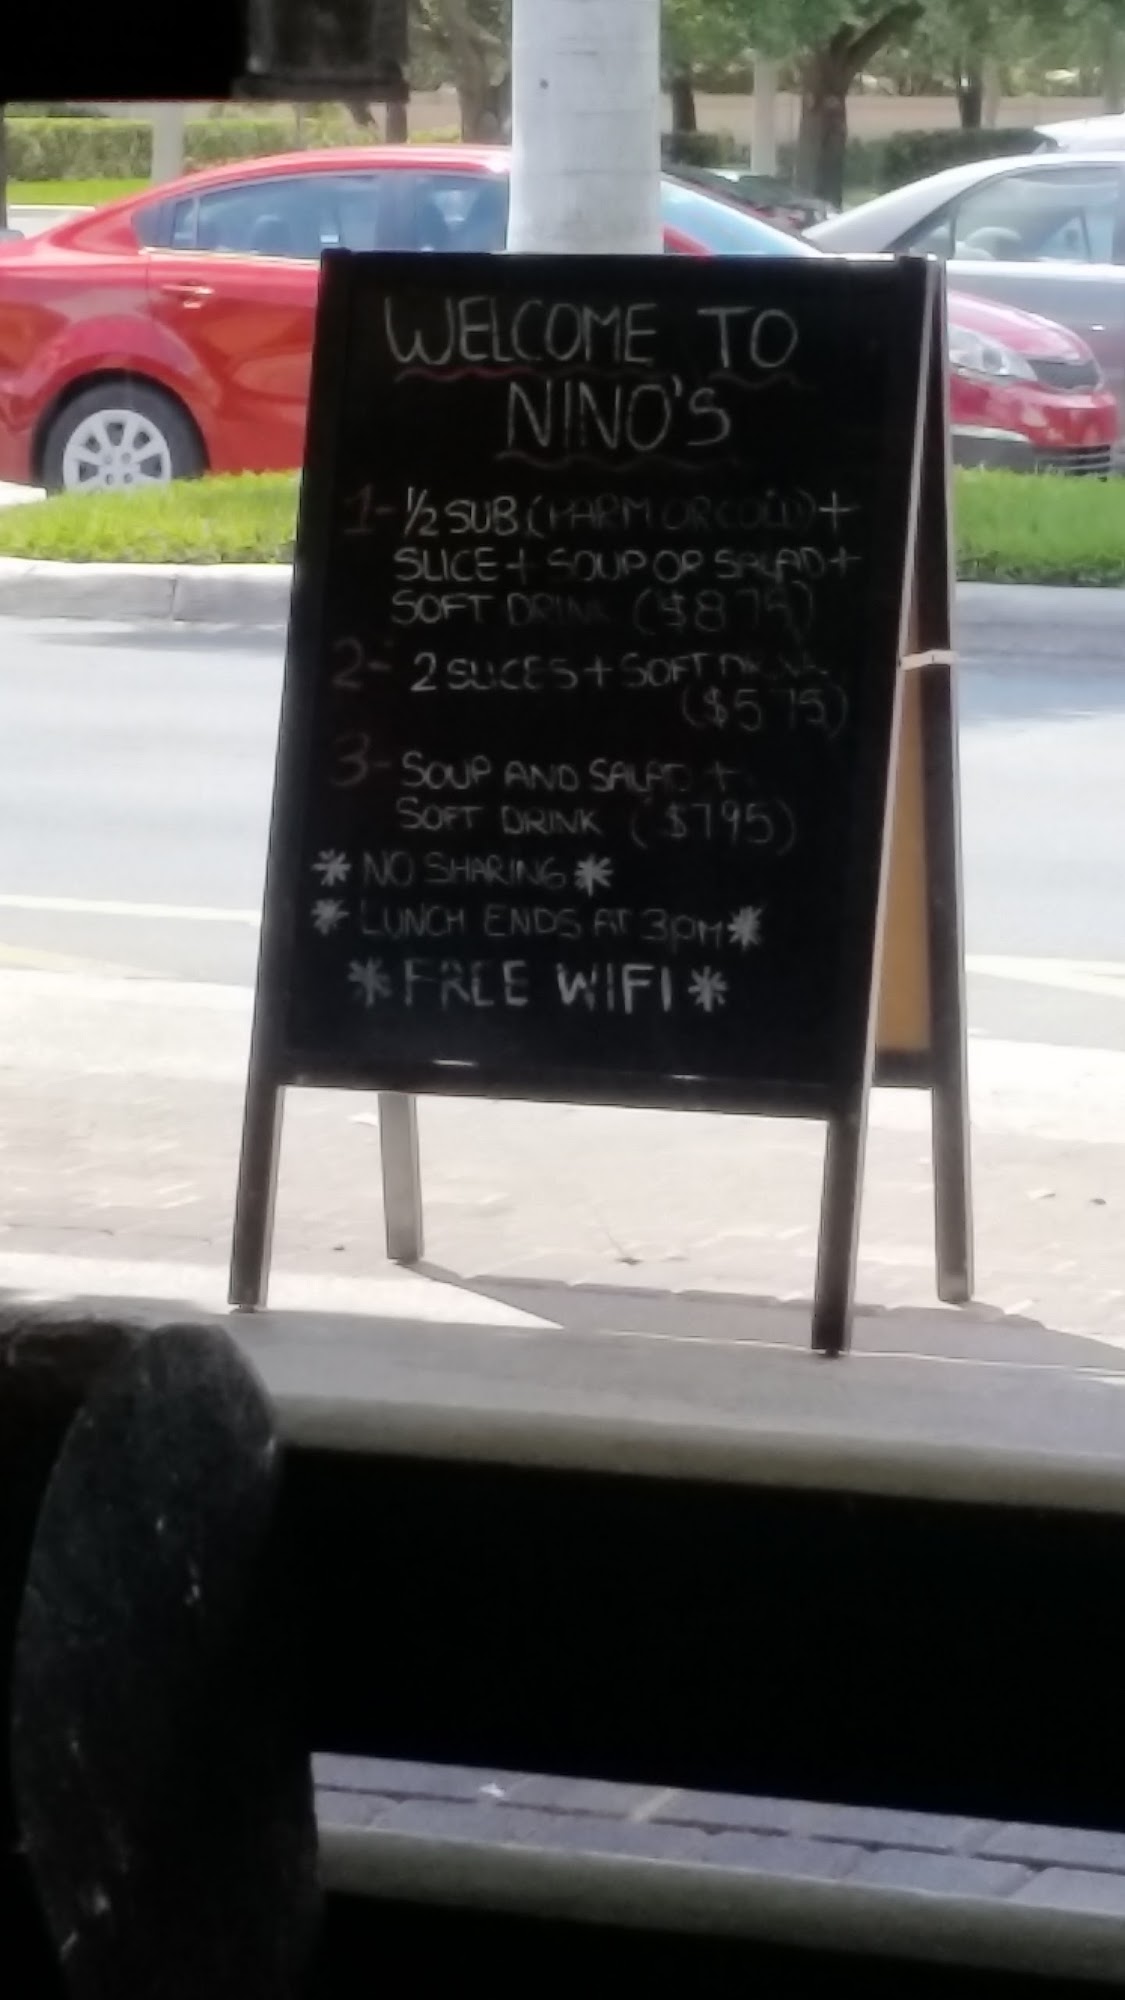 WELCOME TO
NINO'S
1- ½ SUB (WARM OR COLD) +
SLICE + SOUP OR SALAD +
SOFT DRINK ($8 75)
2- 2 SLICES + SOFT DRINK
($5 75)
3- SOUP AND SALAD +
SOFT DRINK ($7 95)
* NO SHARING *
* LUNCH ENDS AT 3PM *
* FREE WIFI *